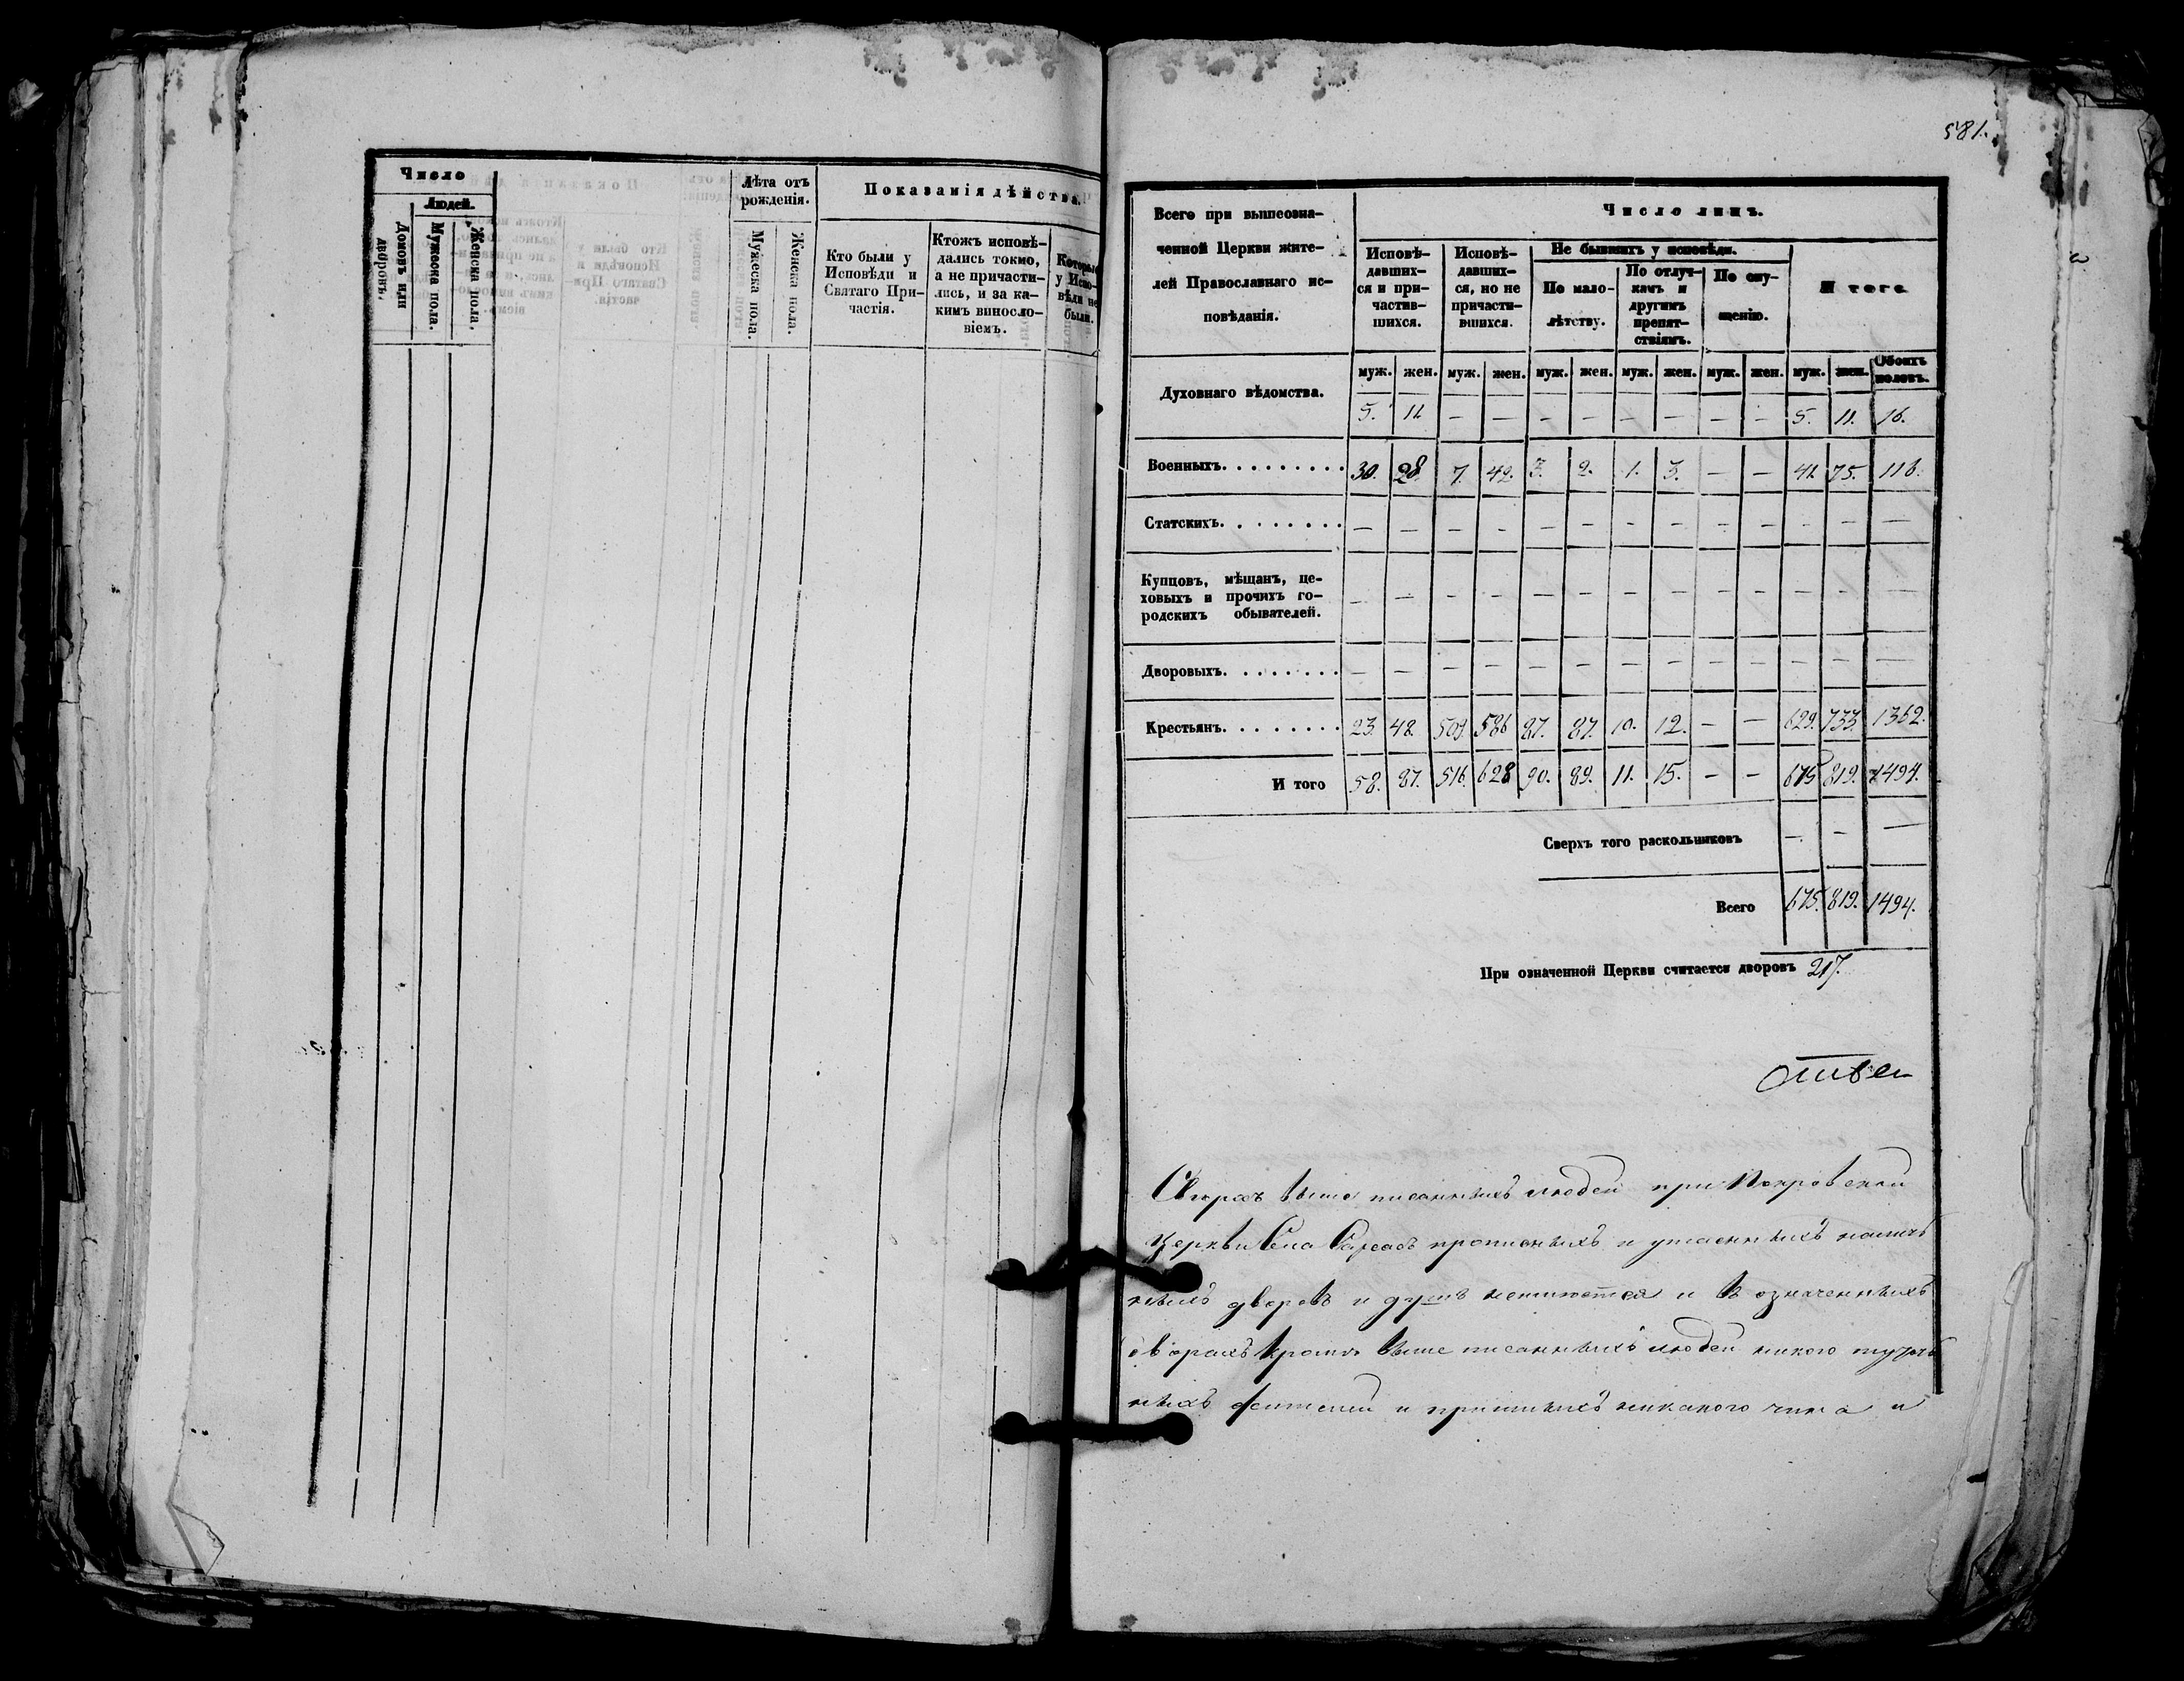 581.
Число
Людей.
Домовъ или дворовъ.
Мужеска пола.
Женска пола.
Лѣта отъ рожденія.
Мужеска пола.
Женска пола.
Показанія дѣйства.
Кто были у Исповѣди и Святаго Причастія.
Ктожъ исповѣдались токмо, а не причастились, и за какимъ винословіемъ.
Которые у Исповѣди не были.
Всего при вышеозна-
ченной Церкви жите-
лей Православнаго ис-
повѣданія.
Число лицъ.
Исповѣдавшихся и причастившихся.
Исповѣдавшихся, но не причастившихся.
Не бывшихъ у исповѣди.
По малолѣтству.
По отлучкамъ и другимъ препятствіямъ.
По опущенію.
Итого
муж. жен. муж. жен. муж. жен. муж. жен. муж. жен. муж. жен. Обоихъ половъ.
Духовнаго вѣдомства. 5. 11 — — — — — — — — 5. 11. 16.
Военныхъ. 30. 28. 7. 42. 3. 2. 1. 3. — — 41. 75. 116.
Статскихъ. — — — — — — — — — — — — —
Купцовъ, мѣщанъ, це-
ховыхъ и прочихъ го-
родскихъ обывателей. — — — — — — — — — — — — —
Дворовыхъ. — — — — — — — — — — — — —
Крестьянъ. 23. 48. 509. 586 87. 87. 10. 12. — — 629. 733. 1362.
И того 58. 87. 516. 628 90. 89. 11. 15. — — 675 819. 1494.
Сверхъ того раскольниковъ — — —
Всего 675. 819. 1494.
При означенной Церкви считается дворовъ 217.
Сверхъ выше писанныхъ людей при Покровской
церкви Села прописныхъ и утаенныхъ
дворовъ и душъ неимеется и в означенныхъ
дворахъ кромѣ выше писанныхъ людей никого
жителей и никакого чина и